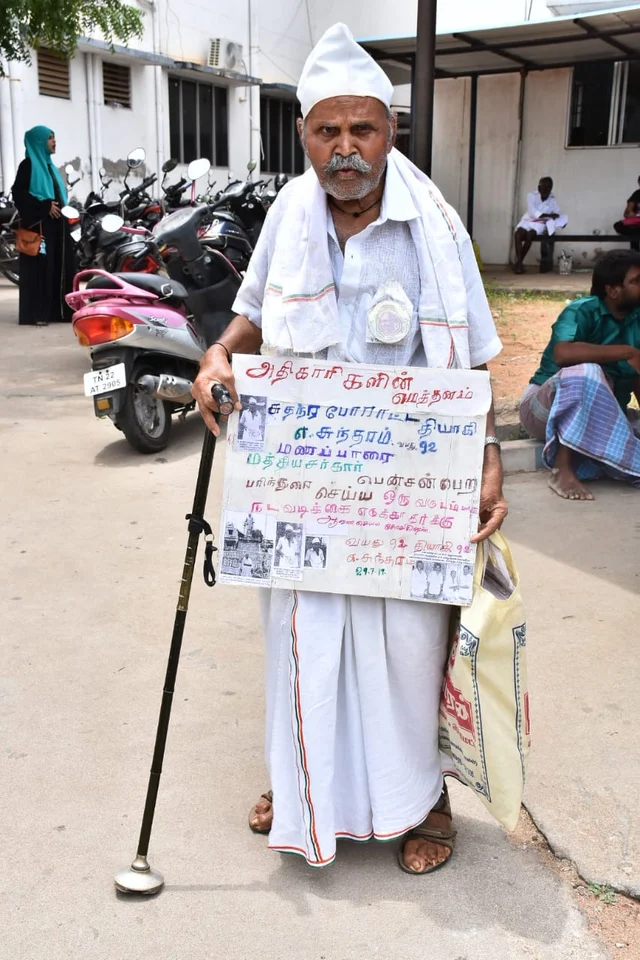 அதிகாரிகளின்
மெத்தனம்
சுதந்திர போராட்ட தியாகி
எ.சுந்தரம். வயது 92
மணப்பாறை
மத்தியசர்கார் பென்சன்பெற
பரிந்துரை செய்ய ஒரு வருடமாக
நடவடிக்கை எடுக்காததற்கு
வயது 92 தியாகி
எ.சுந்தரம்
TN 22
AT 2905